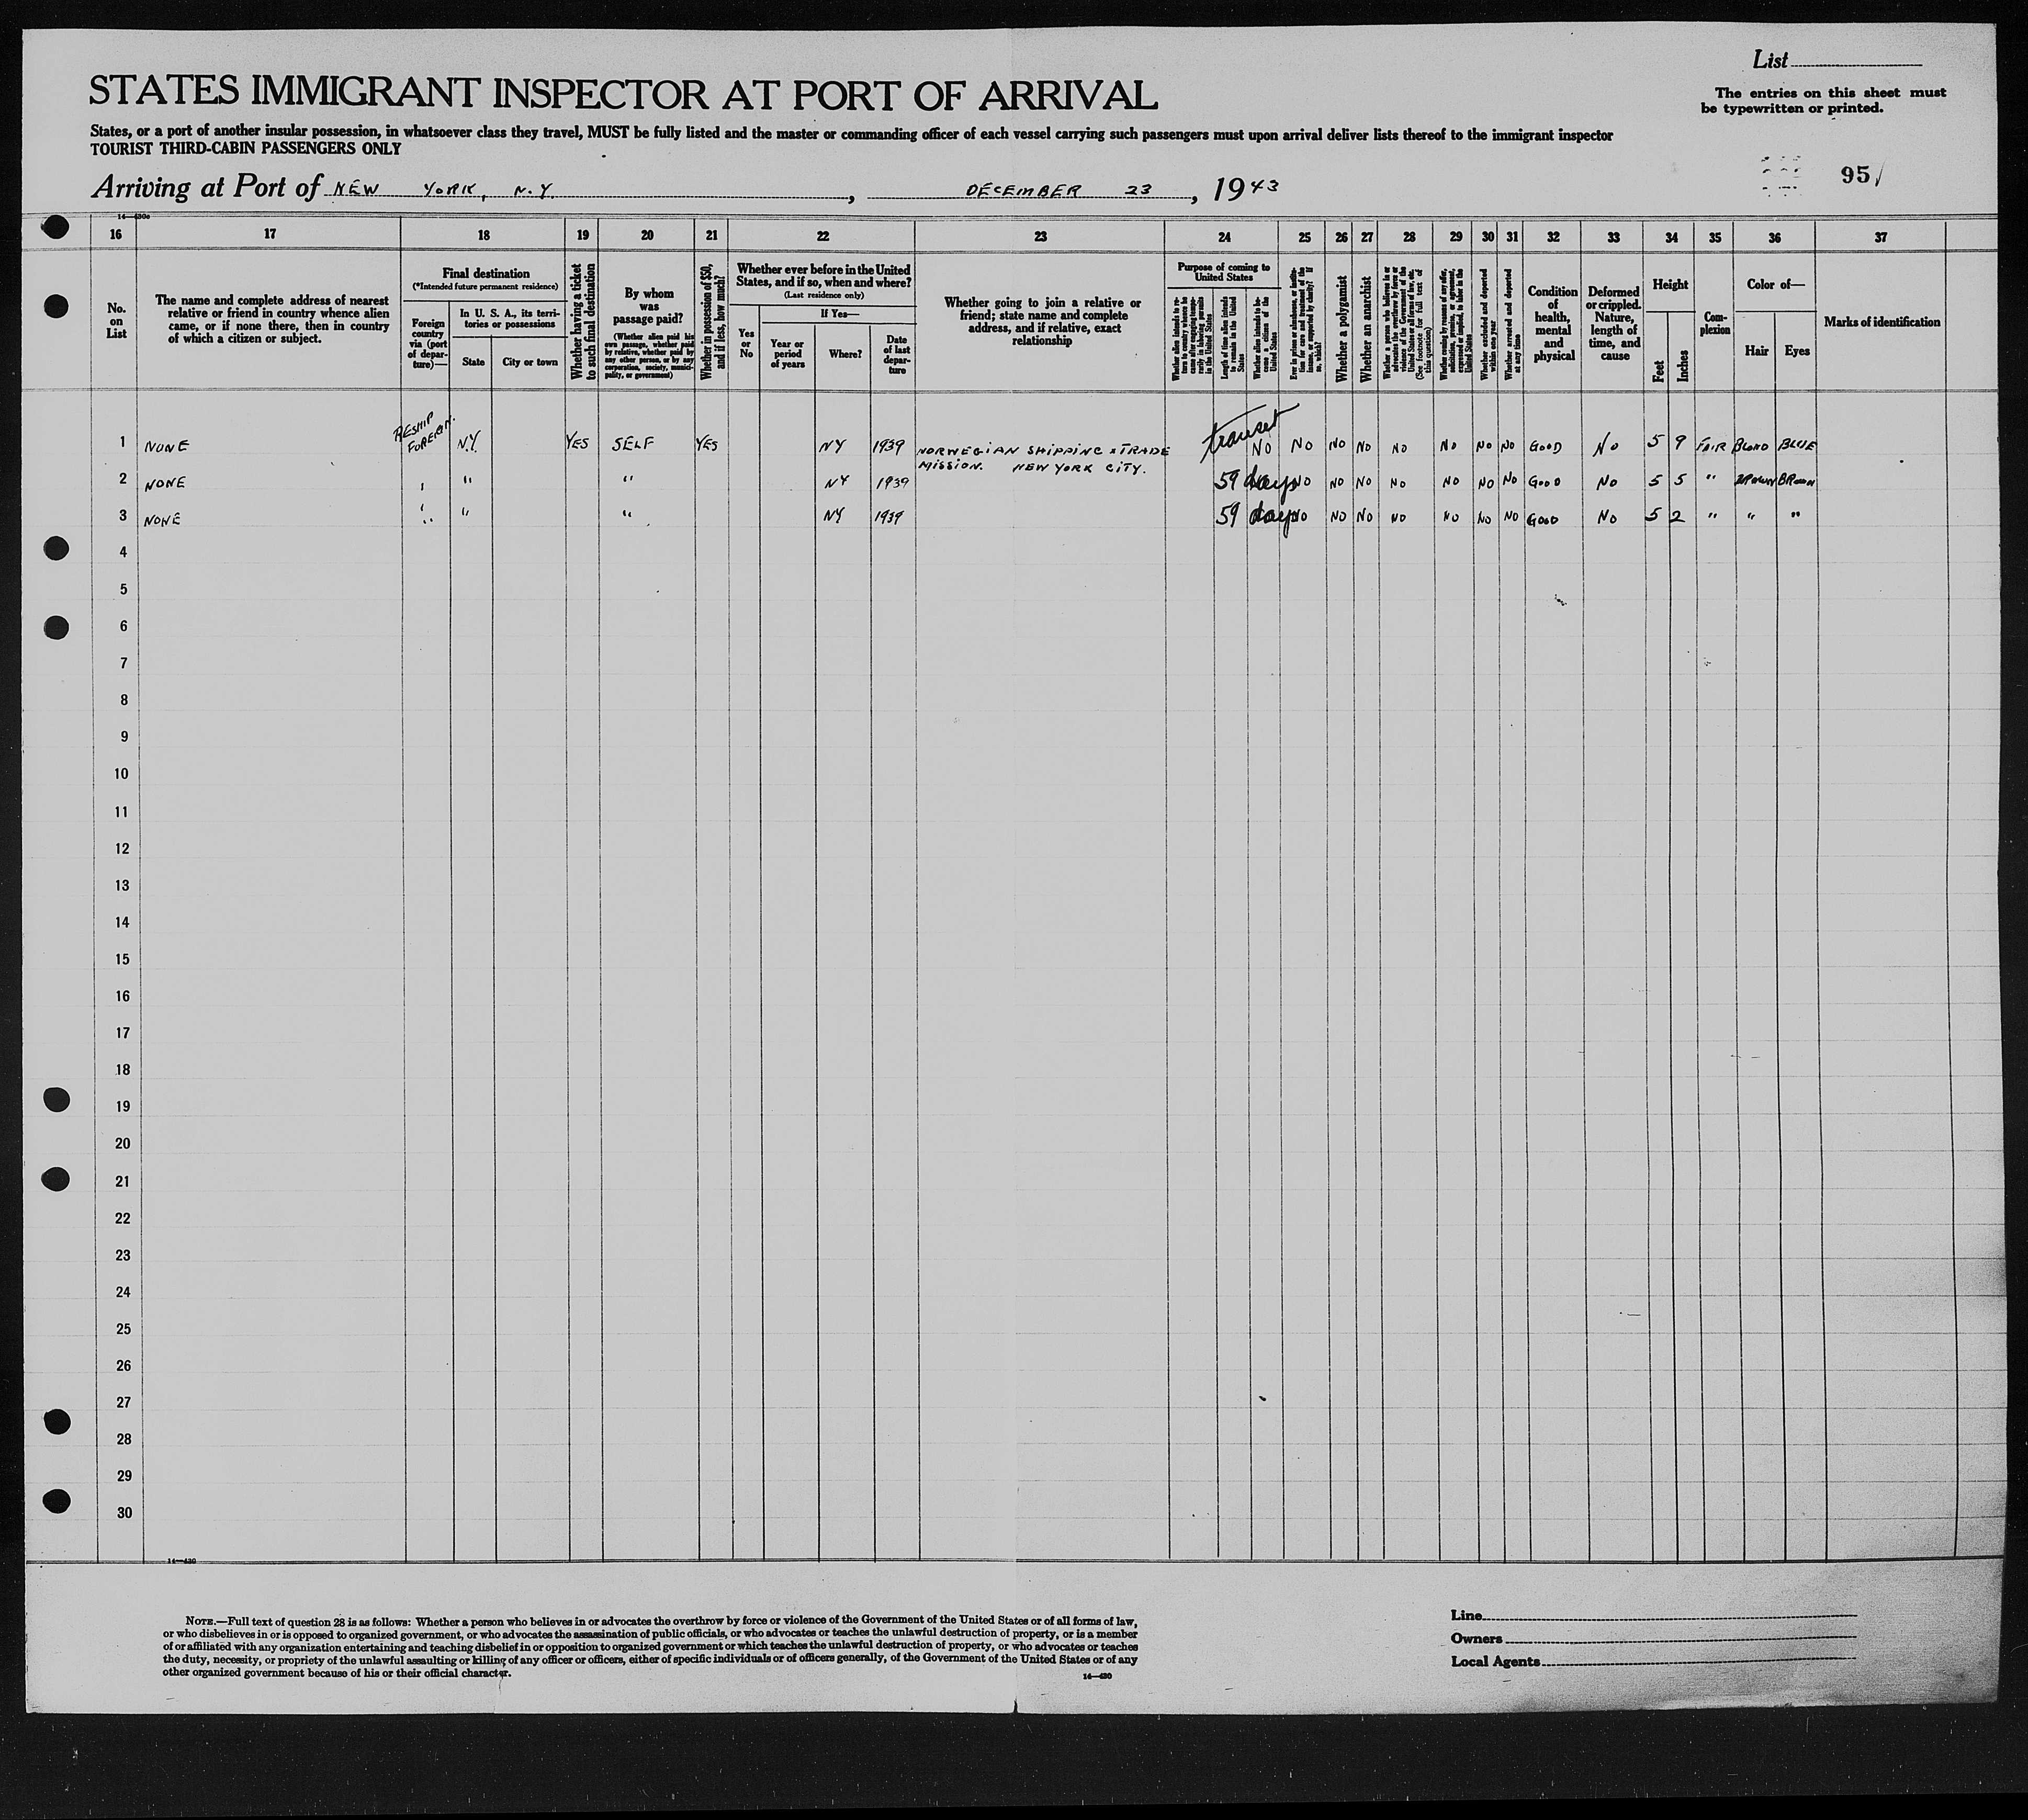 List
STATES IMMIGRANT INSPECTOR AT PORT OF ARRIVAL
The entries on this sheet must
be typewritten or printed.
States, or a port of another insular possession, in whatsoever class they travel, MUST be fully listed and the master or commanding officer of each vessel carrying such passengers must upon arrival deliver lists thereof to the immigrant inspector
TOURIST THIRD-CABIN PASSENGERS ONLY
Arriving at Port of NEW YORK, N.Y. , DECEMBER 23 , 1943
95
16 17 18 19 20 21 22 23 24 25 26 27 28 29 30 31 32 33 34 35 36 37
No. on List
The name and complete address of nearest relative or friend in country whence alien came, or if none there, then in country of which a citizen or subject.
Final destination
(*Intended future permanent residence)
Foreign country via (port of departure)—
In U. S. A., its territories or possessions
State
City or town
Whether having a ticket to such final destination
By whom was passage paid?
(Whether alien paid his own passage, whether paid by relative, whether paid by any other person, or by any corporation, society, municipality, or government)
Whether in possession of $50, and if less, how much?
Whether ever before in the United States, and if so, when and where?
(Last residence only)
Yes or No
If Yes—
Year or period of years
Where?
Date of last departure
Whether going to join a relative or friend; state name and complete address, and if relative, exact relationship
Purpose of coming to United States
Length of time alien intends to remain in the United States
Whether alien intends to become a citizen of the United States
Whether a polygamist
Whether an anarchist
(See footnote for full text of this question)
Whether excluded and deported within one year
Whether arrested and deported at any time
Condition of health, mental and physical
Deformed or crippled. Nature, length of time, and cause
Height
Feet
Inches
Complexion
Color of—
Hair
Eyes
Marks of identification
transit
1 NONE RESHIP FOREIGN. N.Y. YES SELF YES NY 1939 NORWEGIAN SHIPPING & TRADE MISSION. NEW YORK CITY. NO NO NO NO NO NO NO NO GOOD NO 5 9 FAIR BLOND BLUE
2 NONE " " " NY 1939 59 days NO NO NO NO NO NO NO GOOD NO 5 5 " BROWN BROWN
3 NONE " " " NY 1939 59 days NO NO NO NO NO NO NO GOOD NO 5 2 " " "
4
5
6
7
8
9
10
11
12
13
14
15
16
17
18
19
20
21
22
23
24
25
26
27
28
29
30
14—430
NOTE.—Full text of question 28 is as follows: Whether a person who believes in or advocates the overthrow by force or violence of the Government of the United States or of all forms of law,
or who disbelieves in or is opposed to organized government, or who advocates the assassination of public officials, or who advocates or teaches the unlawful destruction of property, or is a member
of or affiliated with any organization entertaining and teaching disbelief in or opposition to organized government or which teaches the unlawful destruction of property, or who advocates or teaches
the duty, necessity, or propriety of the unlawful assaulting or killing of any officer or officers, either of specific individuals or of officers generally, of the Government of the United States or of any
other organized government because of his or their official character.
14—430
Line
Owners
Local Agents